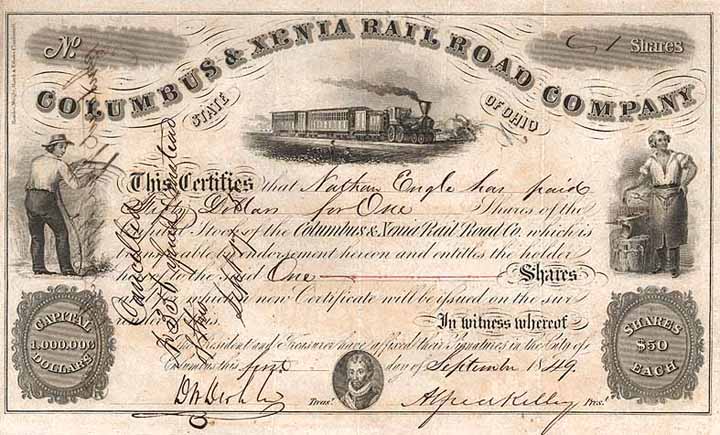 No.
1 Shares
COLUMBUS & XENIA RAIL ROAD COMPANY
STATE OF OHIO
This Certifies that Nathan Engle has paid
Fifty Dollars for One Shares of the
Stock of the Columbus & Xenia Rail Road Co. which is
transferable by endorsement hereon and entitles the holder
to the said One Shares
which a new Certificate will be issued on the sur
In witness whereof
the President and Treasurer have affixed their Signatures in the City of
Columbus this first day of September 1849.
Treasr.
Alfred Kelley Prest.
CAPITAL
1,000,000
DOLLARS
SHARES
$50
EACH
Cancelled
issued instead
of this